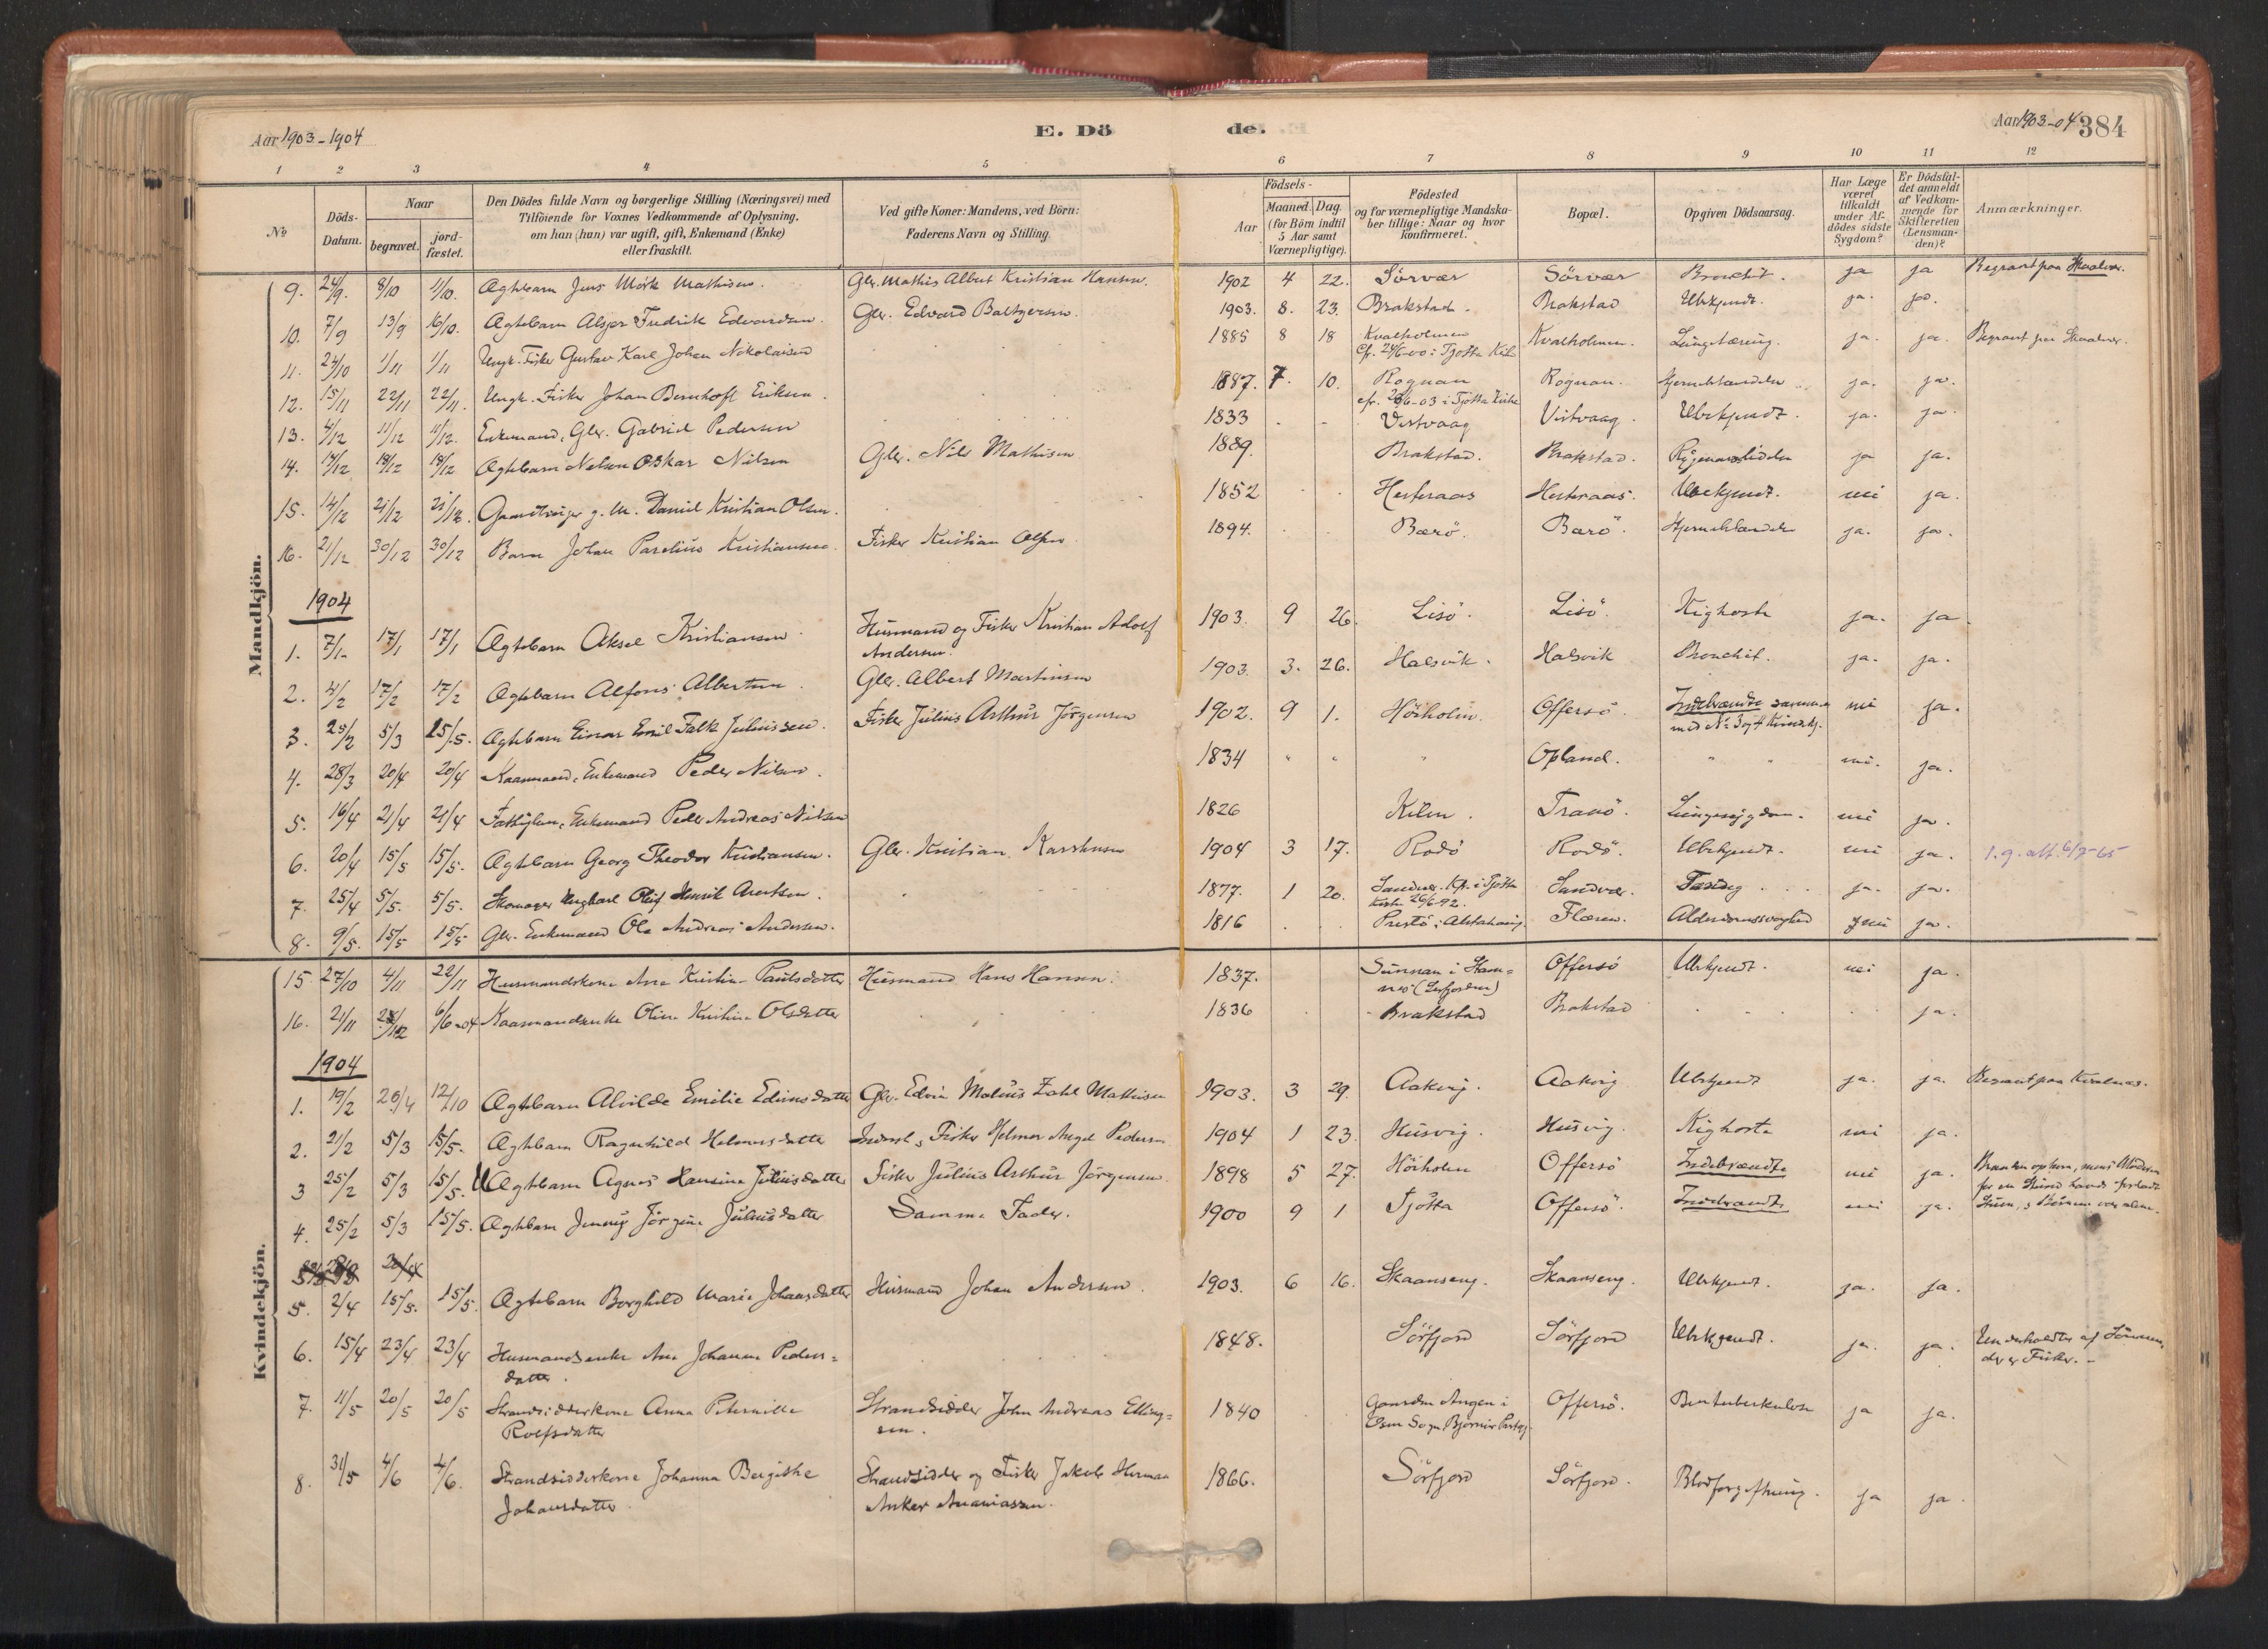 Aar 1903-1904
E. Dö
de.
Aar 1903-04 384
1 2 3 4 5 6 7 8 9 10 11 12
№
Döds-
Datum.
Naar
begravet.
jord-
fæstet.
Den Dödes fulde Navn og borgerlige Stilling (Næringsvei) med
Tilföiende for Voxnes Vedkommende af Oplysning,
om han (hun) var ugift, gift, Enkemand (Enke)
eller fraskilt.
Ved gifte Koner: Mandens, ved Börn:
Faderens Navn og Stilling.
Födsels-
Aar
Maaned. Dag.
(for Börn indtil
5 Aar samt
Værnepligtige).
Födested
og for værnepligtige Mandska-
ber tillige: Naar og hvor
konfirmeret.
Bopæl.
Opgiven Dödsaarsag.
Har Læge
været
tilkaldt
under Af-
dödes sidste
Sygdom?
Er Dödsfal-
det anmeldt
af Vedkom-
mende for
Skifteretten
(Lensman-
den)?
Anmærkninger.
Mandkjön.
9. 24/9. 8/10 11/10. Ægtebarn Jens Mörk Mathisen. Gbr. Mathis Albert Kristian Hansen. 1902 4 22. Sörvær Sörvær Bronchit. ja ja Begravet paa Skaalvær.
10. 7/9 13/9 16/10. Ægtebarn Fredrik Edvardsen. Gbr. Edvard Baltzersen. 1903. 8. 23. Brakstad. Brakstad Ubekjendt. ja. ja.
11. 24/10 1/11 1/11 Ungk. Fisker Gustav Karl Johan Nikolaisen 1885 8 18 Kvalholmen Kvalholmen. Lungetæring. ja. ja. Begravet paa Skaalvær.
Cfr. 24/6-00 i Tjötta Kirke
12. 15/11 22/11 22/11. Ungk. Fisker Johan Bernhoft Eriksen. 1887. 7. 10. Rognan Rognan. Hjerneblandelse ja. ja.
cfr. 28/6-03 i Tjötta Kirke
13. 4/12 11/12 11/12. Enkemand, Gbr. Gabriel Pedersen 1833 Vistvaag Vistvaag. Ubekjendt. ja. ja.
14. 14/12 19/12 19/12 Ægtebarn Nelsen Oskar Nilsen Gbr. Nils Mathisen 1889. Brakstad. Brakstad. Rygmarvslidelse ja ja.
15. 14/12 21/12 21/12. g. M. Daniel Kristian Olsen. 1852 Hesteraas Hesteraas. Ubekjendt. nei ja.
16. 21/12 30/12 30/12 Barn Johan Parelius Kristiansen Fisker Kristian Olsen 1894. Bærö. Bærö. ja. ja.
1904
1. 7/1. 17/1 17/1 Ægtebarn Aksel Kristiansen. Husmand og Fisker Kristian Adolf 1903. 9 26. Lisö. Lisö. Kighoste ja. ja.
Andersen.
2. 4/2 17/2 17/2 Ægtebarn Alfons Albertsen. Gbr. Albert Martinsen 1903. 3. 26. Halsvik. Halsvik Bronchit. ja. ja.
3. 25/2 5/3 15/5. Ægtebarn Einar Emil Falk Juliussen. Fisker Julius Arthur Jörgensen 1902. 9 1. Höiholm. Offersö. Indebrændte sammen nei ja.
med No 3 og 4 Kvindekj.
4. 28/3 20/4 20/4 Kaarmand, Enkemand Peder Nilsen. 1834 " " " Opland. " " nei. ja.
5. 16/4 21/4 21/4 Enkemand Peder Andreas Nilsen 1826 Kilen. Tranö. Lungesygdom. nei ja.
6. 20/4 15/5 15/5. Ægtebarn Georg Theodor Kristiansen. Gbr. Kristian Karstensen 1904 3 17. Rodö Rodö. Ubekjendt. nei ja. 1.g. att. 6/7-65
7. 25/4 5/5. 5/5. Skomager Ungkarl Oluf Henrik Arentsen. 1877. 1 20. Sandvær. Kfr. i Tjötta Sandvær. Tæring ja. ja.
Kirke 26/6-92.
8. 9/5. 15/5 15/5 Gbr. Enkemand Ole Andreas Andersen. 1816 Prestö i Alstahaug. Flæsen. Alderdomssvaghed nei ja.
Kvindekjön.
15. 27/10 4/11 22/11 Husmandskone Ane Kristine Paulsdatter Husmand Hans Hansen. 1837. Sunnan i Ham= Offersö Ubekjendt. nei ja.
nes (Leirfjorden)
16. 21/11 /12 6/6-04 Kaarmandsenke Oline Kristine Olsdatter 1836 Brakstad Brakstad ja.
1904
1. 19/2 26/4 12/10 Ægtebarn Alvilde Emilie Edvinsdatter Gbr. Edvin Molius Zahl Mathisen 1903. 3 29. Aakvig. Aakvig Ubekjendt ja. ja. Begravet paa Kvalnes.
2. 21/2 5/3 15/5. Ægtebarn Ragnhild Helmersdatter Inderst, Fisker Helmer Angel Pedersen 1904 1 23. Husvig. Husvig. Kighoste nei ja.
3 25/2 5/3 15/5. Ægtebarn Agnes Hansine Juliusdatter Fisker Julius Arthur Jörgensen. 1898 5 27. Höiholm Offersö Indebrændte nei ja. Branden opkom, mens Moderen
for en Stund havde forladt
4. 25/2 5/3 15/5. Ægtebarn Jenny Jörgine Juliusdatter Samme Fader. 1900 9 1 Tjötta Offersö. Indebrændte nei ja. Stuen, og Börnene var alene.
5. 2/4 15/5. 15/5. Ægtebarn Borghild Marie Johansdatter Husmand Johan Andersen. 1903. 6 16. Skaanseng. Skaanseng. Ubekjendt. ja. ja.
6. 15/4 23/4 23/4 Husmandsenke Ane Johanne Peders= 1848. Sörfjord Sörfjord Ubekjendt. ja. ja. Underholdtes af Sönnen,
datter. der er Fisker.-
7. 11/5 20/5 20/5 Strandsidderkone Anna Peternille Strandsidder John Andreas Elling= 1840 Gaarden Angen i Offersö. Bentuberkulose ja ja.
Rolfsdatter sen. Sogn
8. 31/5 4/6 4/6. Strandsidderkone Johanna Bergithe Strandsidder og Fisker Jakob Herman 1866. Sörfjord Sörfjord. Blodforgiftning. ja ja.
Johansdatter. Anker Ananiassen.